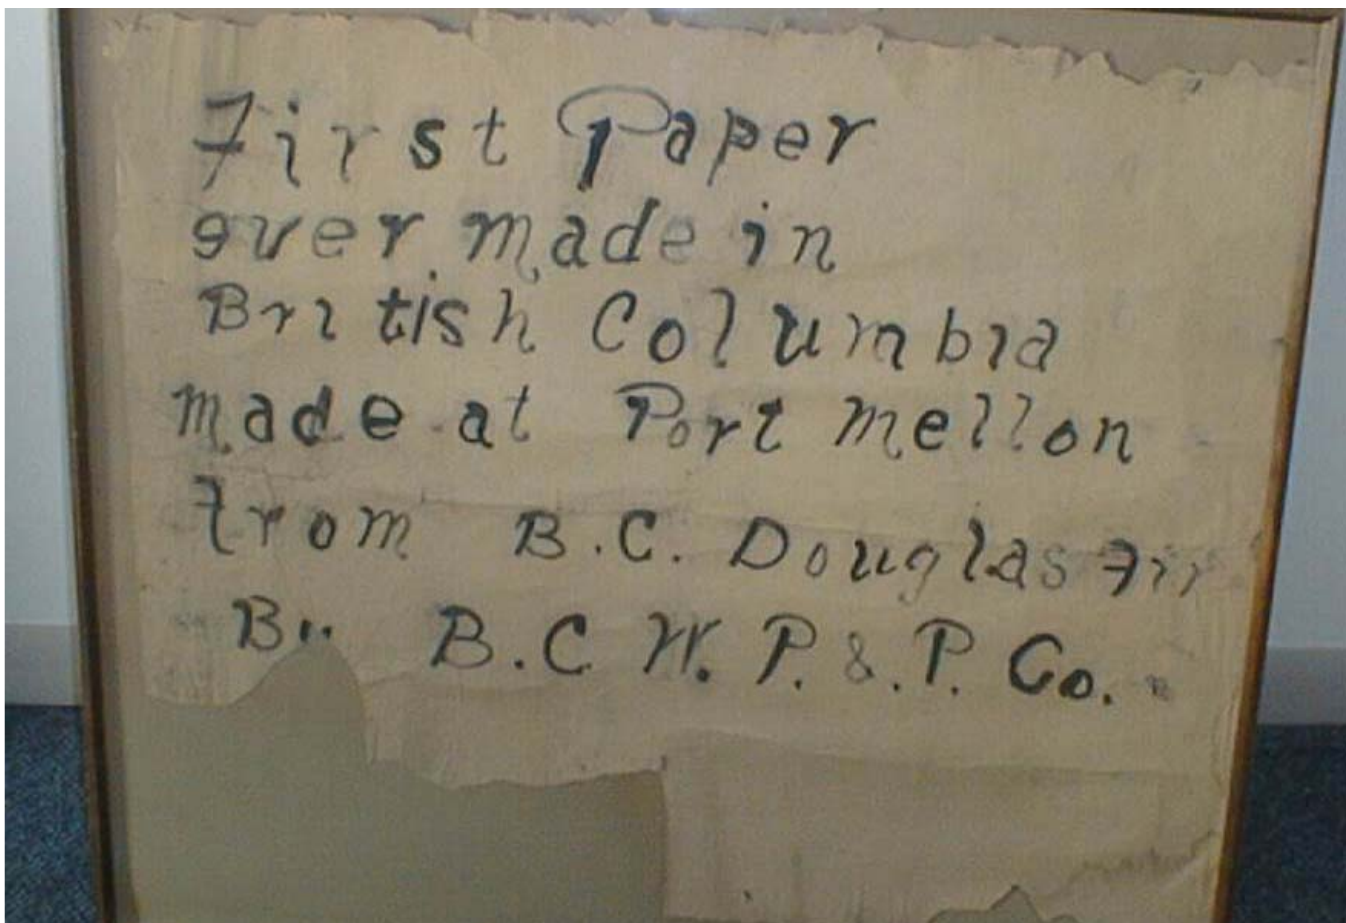 First Paper
ever made in
British Columbia
made at Port Mellon
from B.C. Douglas Fir
By B.C. W. P. & P. Co.